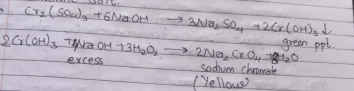 Cr₂(SO₄)₃ + 6NaOH → 3Na₂SO₄ + 2Cr(OH)₃↓
green ppt.
2Cr(OH)₃ + 4NaOH + 3H₂O₂ → 2Na₂CrO₄ + 8H₂O
excess sodium chromate
(Yellow)